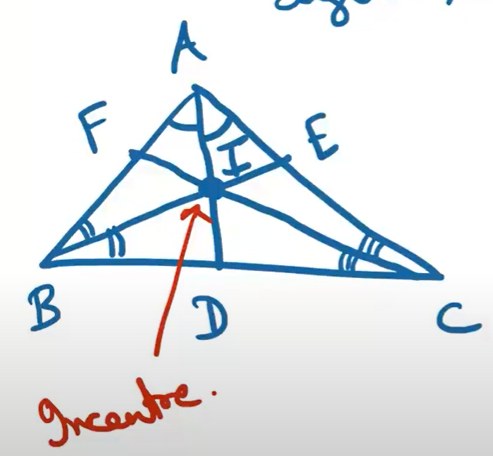 A
F
E
I
B
D
C
Incentre.